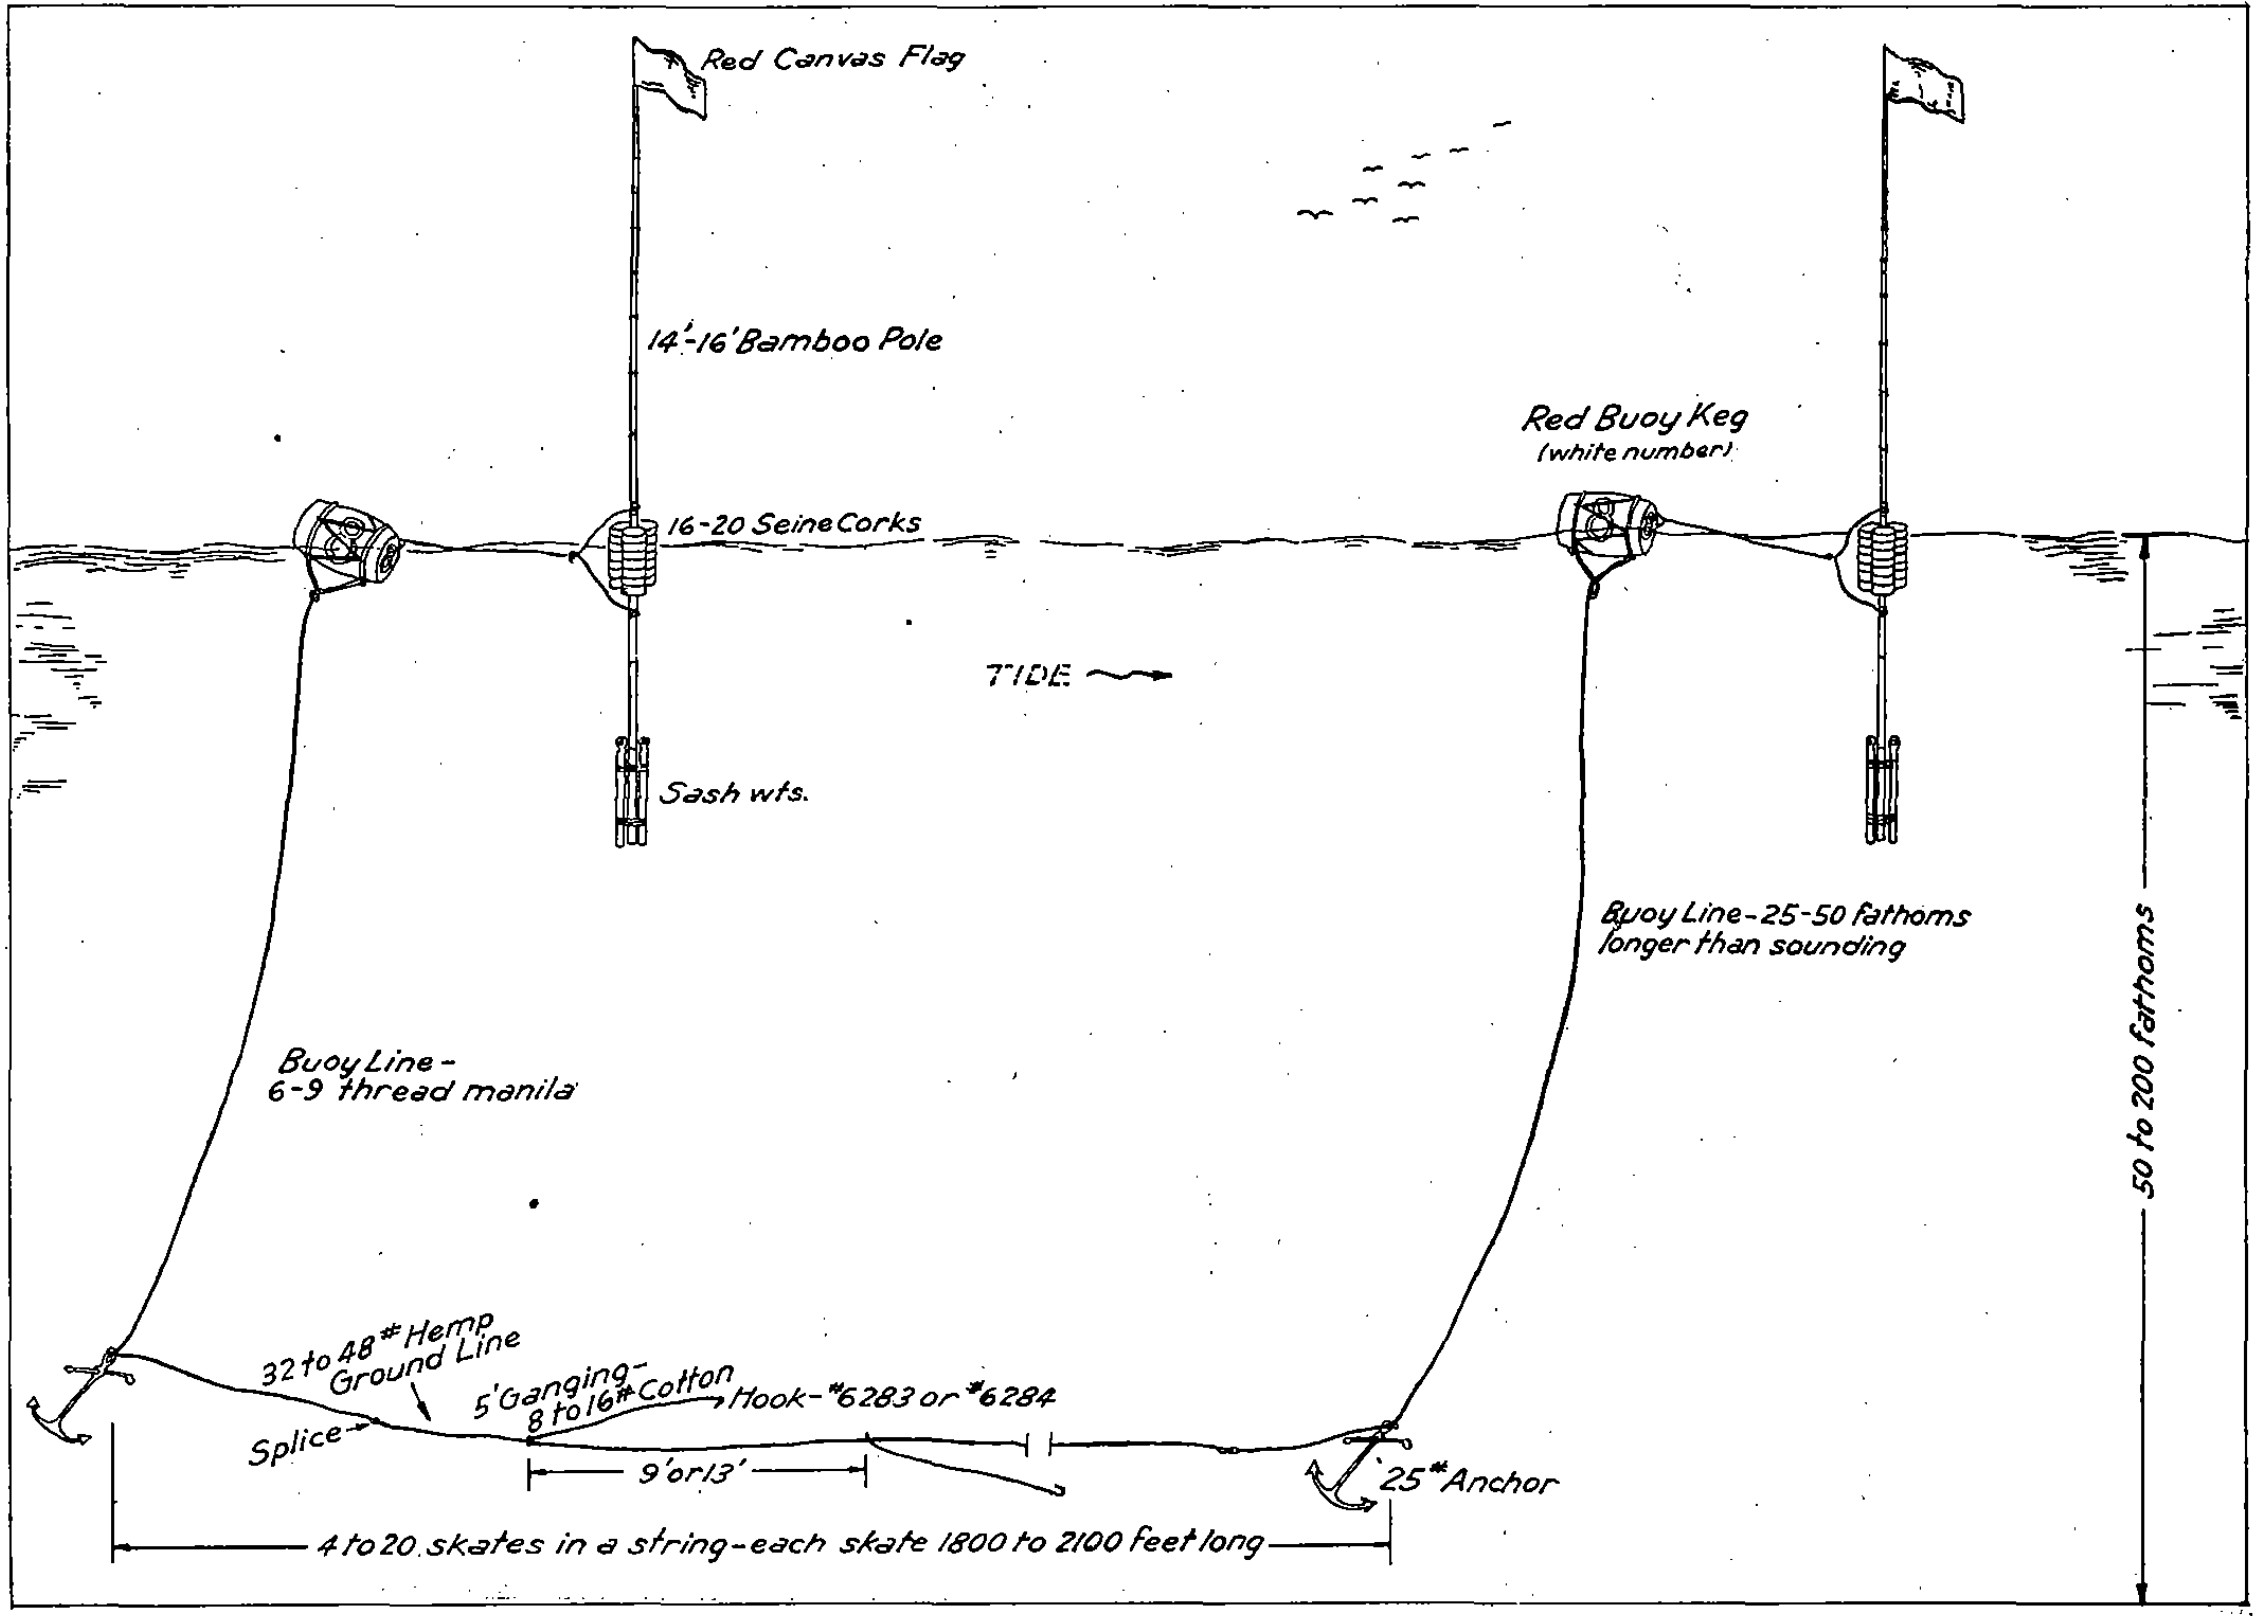 Red Canvas Flag
14'-16' Bamboo Pole
Red Buoy Keg
(white number)
16-20 Seine Corks
TIDE
Sash wts.
Buoy Line-25-50 fathoms
longer than sounding
50 to 200 fathoms
Buoy Line-
6-9 thread manila
32 to 48# Hemp
Ground Line
5' Ganging-
8 to 16# Cotton
Hook-#6283 or #6284
Splice
9' or 13'
25# Anchor
4 to 20 skates in a string-each skate 1800 to 2100 feet long